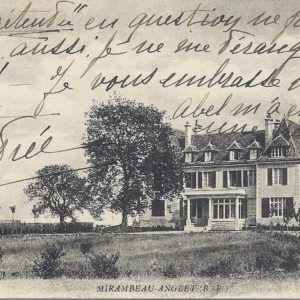 prétendu" en question ne p
aussi, je ne me dérang
Je vous embrasse
Abel m'a
une
MIRAMBEAU-ANGLET (B.-P.)